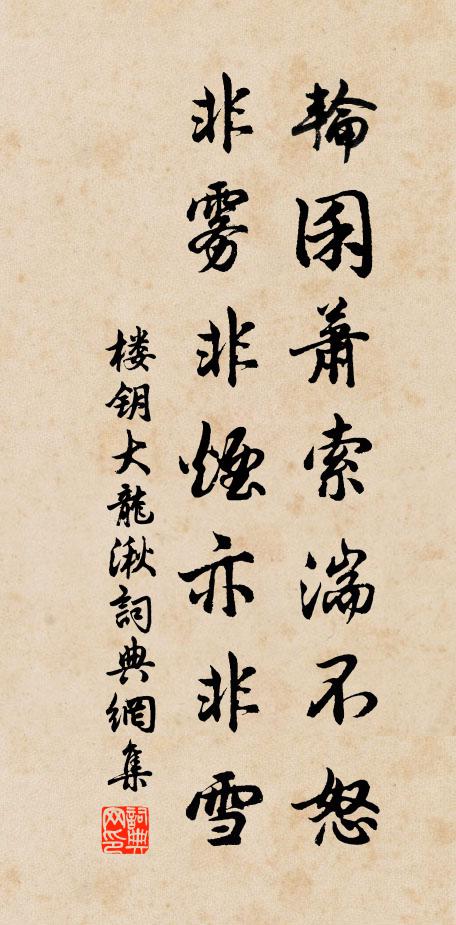 輪囷蕭索湍不怒
非雾非煙亦非雪
楼钥大龍湫詞典網集
詞典网印